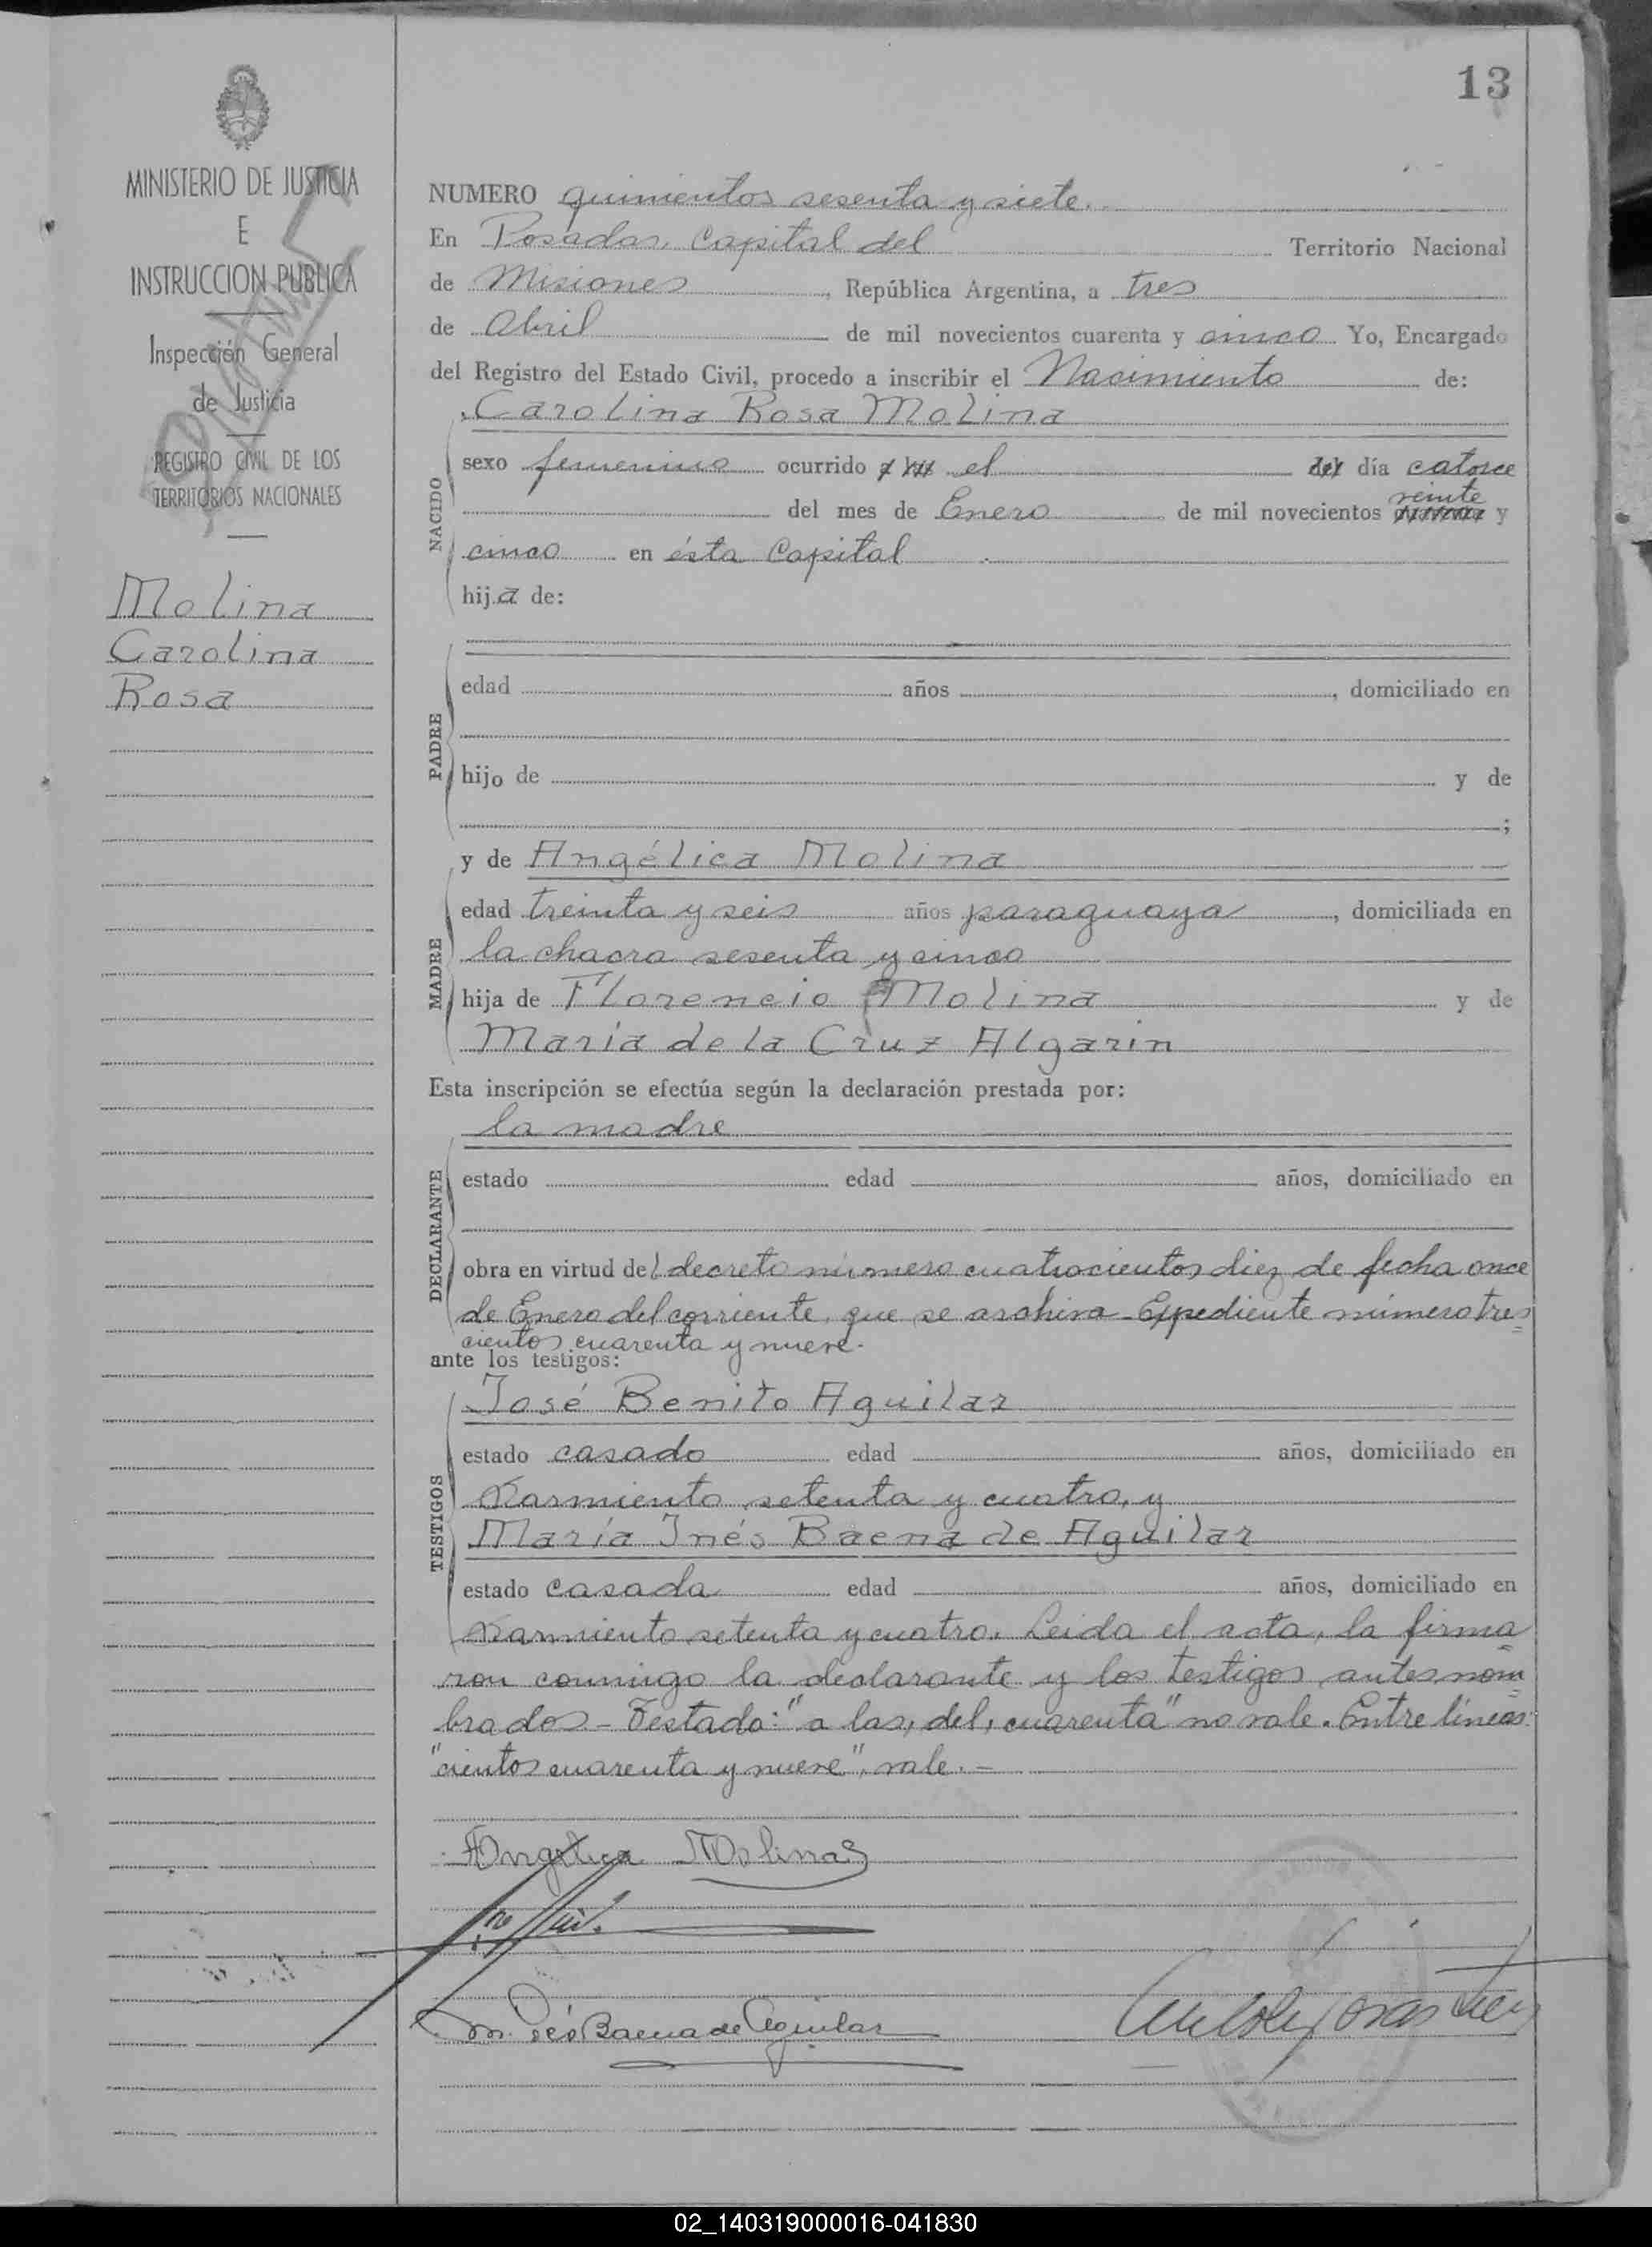 13
MINISTERIO DE JUSTICIA
E
INSTRUCCION PUBLICA
Inspección General
de Justicia
REGISTRO CIVIL DE LOS
TERRITORIOS NACIONALES
Molina
Carolina
Rosa
NUMERO quinientos sesenta y siete.
En Posadas, Capital del Territorio Nacional
de Misiones, República Argentina, a tres
de Abril de mil novecientos cuarenta y cinco Yo, Encargado
del Registro del Estado Civil, procedo a inscribir el Nacimiento de:
Carolina Rosa Molina
NACIDO
sexo femenino ocurrido a las el del día catorce
veinte
del mes de Enero de mil novecientos cuarenta y
cinco en ésta Capital
hija de:
PADRE
edad años , domiciliado en
hijo de y de
;
y de Angélica Molina
MADRE
edad treinta y seis años paraguaya, domiciliada en
la chacra sesenta y cinco
hija de Florencio Molina y de
María de la Cruz Algarin
Esta inscripción se efectúa según la declaración prestada por:
la madre
DECLARANTE
estado edad años, domiciliado en
obra en virtud del decreto número cuatrocientos diez de fecha once
de Enero del corriente, que se archiva - Expediente número tres
cientos cuarenta y nueve.
ante los testigos:
José Benito Aguilar
TESTIGOS
estado casado edad años, domiciliado en
Sarmiento setenta y cuatro, y
María Inés Baena de Aguilar
estado casada edad años, domiciliado en
Sarmiento setenta y cuatro. Leida el acta, la firma=
ron conmigo la declarante y los testigos antes nom=
brados - Testado: "a las, del, cuarenta" no vale. Entre líneas:
"cientos cuarenta y nueve", vale. -
Angelica Molinas
M. Inés Baena de Aguilar
02_140319000016-041830